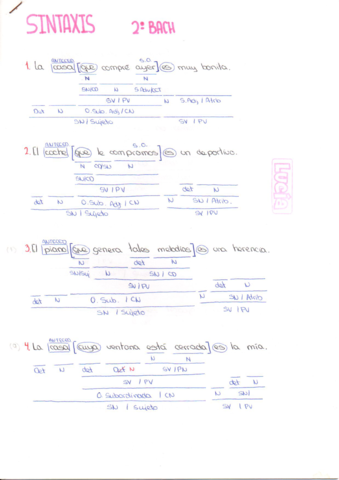 SINTAXIS 2º BACH
ANTECED S.O.
1. La casa [que compre ayer] es muy bonita.
N N
SN/CD S.Adv/CCT
SV / PV N S.Adj / Atrib
Det N O. Sub. Adj / CN SV / PV
SN / Sujeto
ANTECED S.O.
2. El coche [que te compramos] es un deportivo.
N CD/SO N
SN/CD
SV / PV det N
det N O. Sub. Adj / CN N SN / Atrib.
SN / Sujeto SV / PV
Lucía
ANTECED
3. El piano [que genera tales melodias] es una herencia.
N det N
SN/Suj N SN / CD
SV / PV det N
det N O. Sub. / CN N SN / Atrib
SN / Sujeto SV / PV
ANTECED
4. La casa [cuya ventana está cerrada] es la mía.
N N
Det N det N SV / PV
SV / PV det N
O. Subordinada / CN N SN/
SN / Sujeto SV / PV